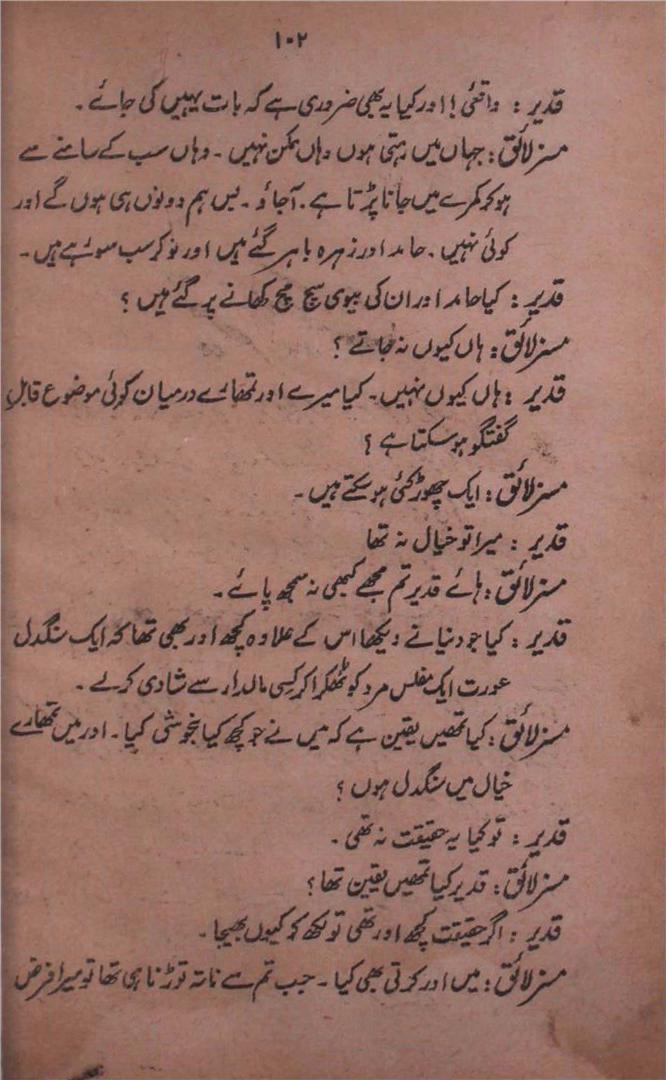 ۱۰۲
قدیر : واقعی ! اور کیا یہ بھی ضروری ہے کہ بات یہیں کی جائے ۔
مسز لائق : جہاں میں رہتی ہوں وہاں ممکن نہیں ۔ وہاں سب کے سامنے سے
ہو کر کمرے میں جانا پڑتا ہے ۔ آجاؤ ۔ بس ہم دونوں ہی ہوں گے اور
کوئی نہیں ۔ حامد اور زہرہ باہر گئے ہیں اور نوکر سب سو رہے ہیں ۔
قدیر : کیا حامد اور ان کی بیوی سچ مچ کھانے پر گئے ہیں ؟
مسز لائق : ہاں کیوں نہ جاتے ؟
قدیر : ہاں کیوں نہیں ۔ کیا میرے اور تمھارے درمیان کوئی موضوع قابلِ
گفتگو ہو سکتا ہے ؟
مسز لائق : ایک چھوڑ کئی ہو سکتے ہیں ۔
قدیر : میرا تو خیال نہ تھا
مسز لائق : ہائے قدیر تم مجھے کبھی نہ سمجھ پائے ۔
قدیر : کیا جو دنیا نے دیکھا اس کے علاوہ کچھ اور بھی تھا کہ ایک سنگدل
عورت ایک مفلس مرد کو ٹھکرا کر کسی مالدار سے شادی کر لے ۔
مسز لائق : کیا تمھیں یقین ہے کہ میں نے جو کچھ کیا بخوشی کیا ۔ اور میں تمھارے
خیال میں سنگدل ہوں ؟
قدیر : تو کیا یہ حقیقت نہ تھی ۔
مسز لائق : قدیر کیا تمھیں یقین تھا ؟
قدیر : اگر حقیقت کچھ اور تھی تو لکھ کر کیوں بھیجا ۔
مسز لائق : میں اور کرتی بھی کیا ۔ جب تم سے ناتہ توڑنا ہی تھا تو میرا فرض